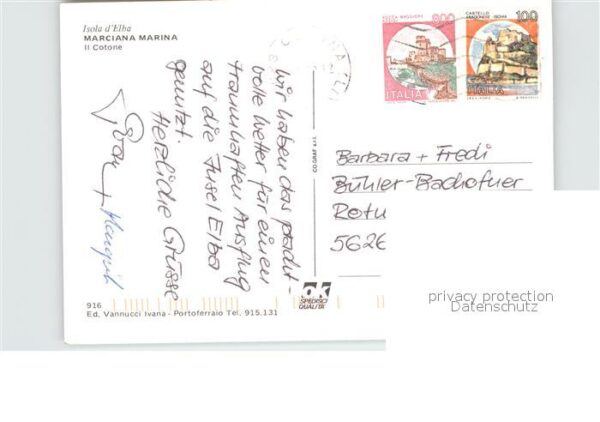 Isola d'Elba
MARCIANA MARINA
Il Cotone
Wir haben das pracht-
volle Wetter für einen
traumhaften Ausflug
auf die Insel Elba
genutzt.
Herzliche Grüsse
+
916
Ed. Vannucci Ivana - Portoferraio Tel. 915.131
COGRAF s.r.l.
OK
SPEDISCI
QUALITÀ
800
ITALIA
CASTELLO
ARAGONESE ISCHIA
100
ITALIA
Barbara + Fredi
Bühler-Bachofner
Rotu
5626
privacy protection
Datenschutz